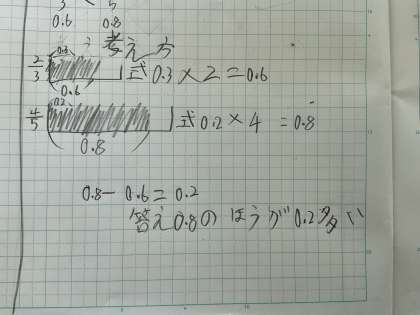 3 < 5
0.6 0.8
考え方
2/3 0.3 式 0.3×2=0.6
0.6
4/5 0.2 式 0.2×4=0.8
0.8
0.8-0.6=0.2
答え 0.8のほうが0.2多い